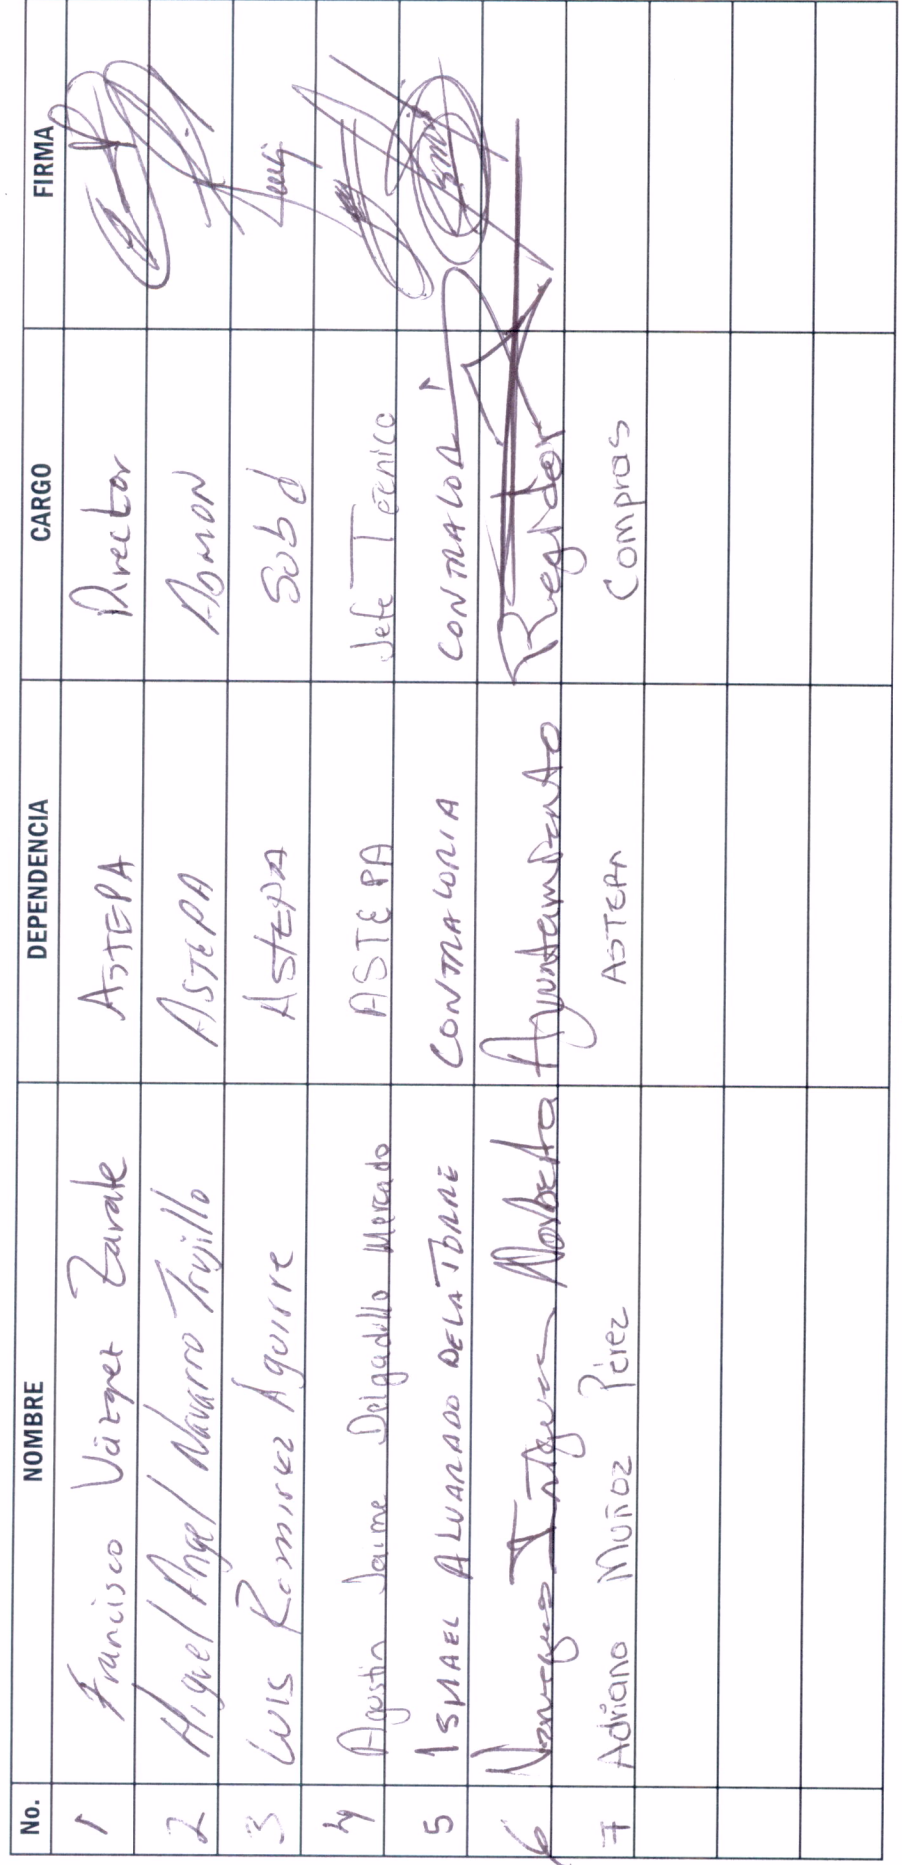 No. NOMBRE DEPENDENCIA CARGO FIRMA
1 Francisco Vázquez Zarate ASTEPA Director
2 Miguel Angel Navarro Trujillo ASTEPA ADMON
3 Luis Ramirez Aguirre ASTEPA Subd
4 Agustín Jaime Delgadillo Mercado ASTEPA Jefe Tecnico
5 ISMAEL ALVARADO DE LA TORRE CONTRALORIA CONTRALOR
6 Iñiguez Norberto Ayuntamiento Regidor
7 Adriano Muñoz Pérez ASTEPA Compras